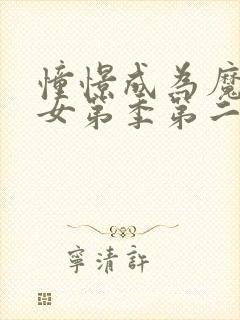 憧憬成為魔
女第季第二
寧清許